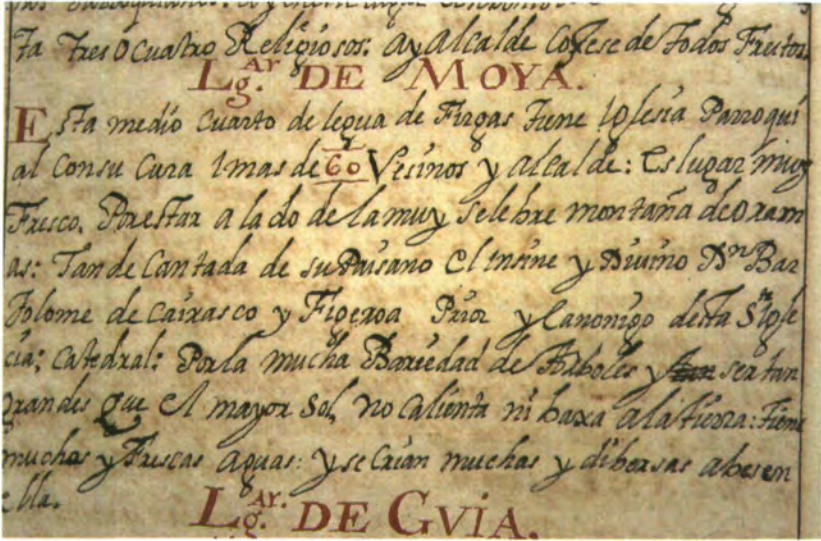 ta tres o cuatro Religiosos: ay Alcalde Cojese de todos Frutos
Lg.ar DE MOYA.
Esta medio Cuarto de legua de Firgas tiene Iglesia Parroqui
al Consu Cura I mas de 60 Vesinos y Alcalde: Es lugar muy
Fresco. Por estar a lado de la muy selebre montaña de Oram
as: Tan de Cantada de su Paisano El insine y Divino Dn Bar
tolome de Cairasco y Figeroa Prior y Canonigo desta Sta Igle
cia; Catedral: Por la mucha Bariedad de Arboles y ser tan
grandes que el mayor Sol, no Calienta ni baxa a la tierra: tiene
muchas y Frescas aguas: y se Crian muchas y dibersas abes en
ella.
Lg.ar DE GVIA.